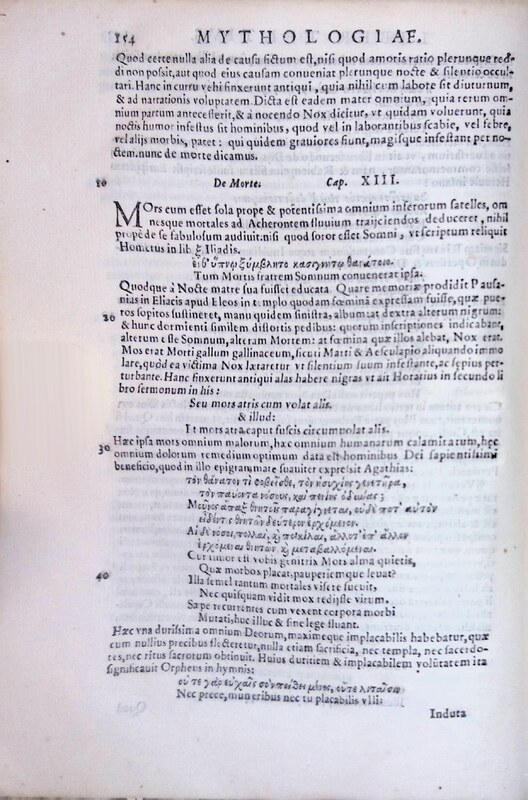 154 MYTHOLOGIAE.
Quod certe nulla alia de causa fictum est, nisi quod amoris ratio plerunque red-
di non possit, aut quod eius causam conueniat plerunque nocte & silentio occul-
tari. Hanc in curru vehi finxerunt antiqui, quia nihil cum labore sit diuturnum,
& ad narrationis voluptatem. Dicta est eadem mater omnium, quia rerum om-
nium partum antecesserit, & a nocendo Nox dicitur, vt quidam voluerunt, quia
noctis humor infestus sit hominibus, quod vel in laborantibus scabie, vel febre,
vel alijs morbis, patet: qui quidem grauiores fiunt, magisque infestant per no-
ctem. nunc de morte dicamus.
10 De Morte. Cap. XIII.
MOrs cum esset sola prope & potentissima omnium inferorum satelles, om
nesque mortales ad Acherontem fluuium traijciendos deduceret, nihil
prope de se fabulosum audiuit. nisi quod soror esset Somni, vt scriptum reliquit
Homerus in lib. ξ. Iliadis.
ἔνθ' ὕπνῳ ξύμβλητο κασιγνήτῳ θανάτοιο.
Tum Mortis fratrem Somnum conuenerat ipsa.
Quodque à Nocte matre sua fuisset educata. Quare memoriæ prodidit Pausa-
nias in Eliacis apud Eleos in templo quodam fœmina expressam fuisse, quæ pue-
20 ros sopitos sustineret, manu quidem sinistra, album: at dextra alterum nigrum:
& hunc dormienti similem distortis pedibus: quorum inscriptiones indicabant,
alterum esse Somnum, alteram Mortem: at fœmina quæ illos alebat, Nox erat.
Mos erat Morti gallum gallinaceum, sicuti Marti & Aesculapio aliquando immo
lare, quod ea victima Nox laxaretur vt silentium suum infestante, ac sepius per-
turbante. Hanc finxerunt antiqui alas habere nigras vt ait Horatius in secundo li
bro sermonum in his:
Seu mors atris cum volat alis.
& illud:
Et mors atra caput fuscis circumuolat alis.
30 Hæc ipsa mors omnium malorum, hæc omnium humanarum calamitatum, hęc
omnium dolorum remedium optimum data est hominibus Dei sapientissimi
beneficio, quod in illo epigrammate suauiter expressit Agathias:
τὸν θάνατον τί φοβεῖσθε, τὸν ἡσυχίης γενετῆρα,
τὸν παύοντα νόσους, καὶ πενίης ὀδύνας;
Μοῦνος ἅπαξ θνητοῖς παραγίγνεται, οὐδέ ποτ' αὐτὸν
εἶδέν τις θνητῶν δεύτερον ἐρχόμενον.
Αἱ δὲ νόσοι, πολλαὶ, καὶ ποικίλαι, ἄλλοτ' ἐπ' ἄλλον
ἐρχόμεναι θνητῶν καὶ μεταβαλλόμεναι.
Cur timor est vobis genitrix Mors alma quietis,
40 Quæ morbos placat, pauperiemque leuat?
Illa semel tantum mortales visere sueuit,
Nec quisquam vidit mox redijsse virum.
Sæpe recurrentes cum vexent corpora morbi
Mutati, huc illuc & sine lege fluant.
Hæc vna durissima omnium Deorum, maximeque implacabilis habebatur, quæ
cum nullius precibus flecteretur, nulla etiam sacrificia, nec templa, nec sacerdo-
tes, nec ritus sacrorum obtinuit. Huius duritiem & implacabilem volūtatem ita
significauit Orpheus in hymnis:
οὔτε γὰρ εὐχαῖς σὺ πείθει μόνος, οὔτε λιταῖσιν
Nec prece, muneribus nec tu placabilis vllis.
Induta